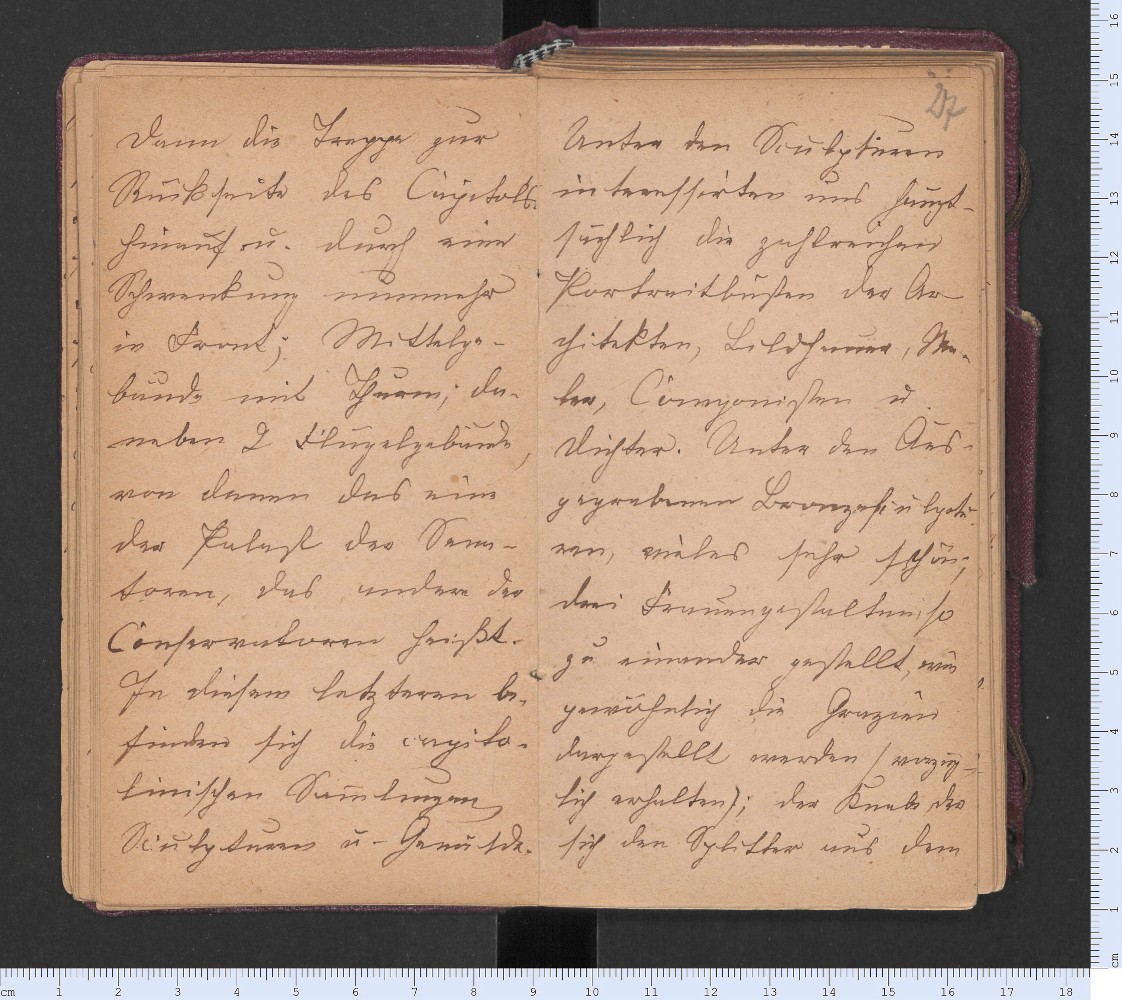 Dann die Treppe zur
Rückseite des Capitols
hinauf u. durch eine
Schwenkung nunmehr
in Front; Mittelge-
bäude mit Thurm; da-
neben 2 Flügelgebäude,
von denen das eine
der Palast der Sena-
toren, das andere der
Conservatoren heißt.
In diesem letzteren be-
finden sich die capito-
linischen Sammlungen
Sculpturen u. Gemälde.
27
Unter den Sculpturen
interessirten uns haupt-
sächlich die zahlreichen
Portraitbüsten der Ar
chitekten, Bildhauer, Ma-
ler, Componisten u.
Dichter. Unter den Aus-
gegrabenen Bronzesculptu-
ren, vieles sehr schön;
drei Frauengestalten, so
zu einander gestellt, wie
gewöhnlich die Grazien
dargestellt werden (vorzüg-
lich erhalten); der Knabe der
sich den Splitter aus dem